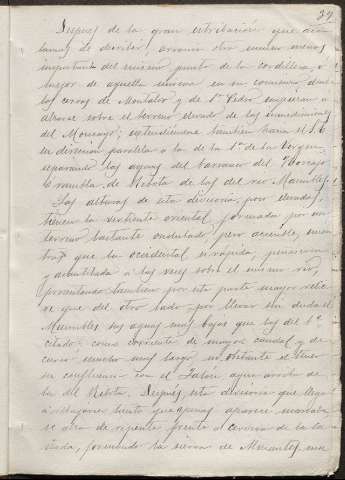 39
Despues de la gran estribacion que aca
bamos de describir, arranca otra mucho menos
importante del mismo punto de la cordillera, ó
mejor de aquella misma en su comienzo donde
los cerros de Montalvo y de Sn. Pedro empiezan á
alzarse sobre el terreno elevado de las inmediaciones
del Moncayo; estendiendose tambien hacia el S.E.
en direccion paralela á la de la Sa. de la Virgen
separando las aguas del barranco del
Rambla de Ribota de las del rio Manubles.
Las alturas de esta divisoria, poco elevadas,
tienen la vertiente oriental formada por un
terreno bastante ondulado, pero accesible, mien
tras que la occidental es rápida, peñascosa
y acantilada á las veces sobre el mismo rio,
presentando tambien por esta parte mayor relie
ve que del otro lado, por llevar sin duda el
Manubles sus aguas mas bajas que las del 1º
citado como corriente de mayor caudal y de
curso mucho mas largo, no obstante el tener
su confluencia con el Jalón agua arriba de
la del Ribota. Despues, esta divisoria que llega
á rebajarse tanto que apenas aparece marcada
se alza de repente frente á Cervera de la Ca
ñada, formando la sierra de Armantes, una